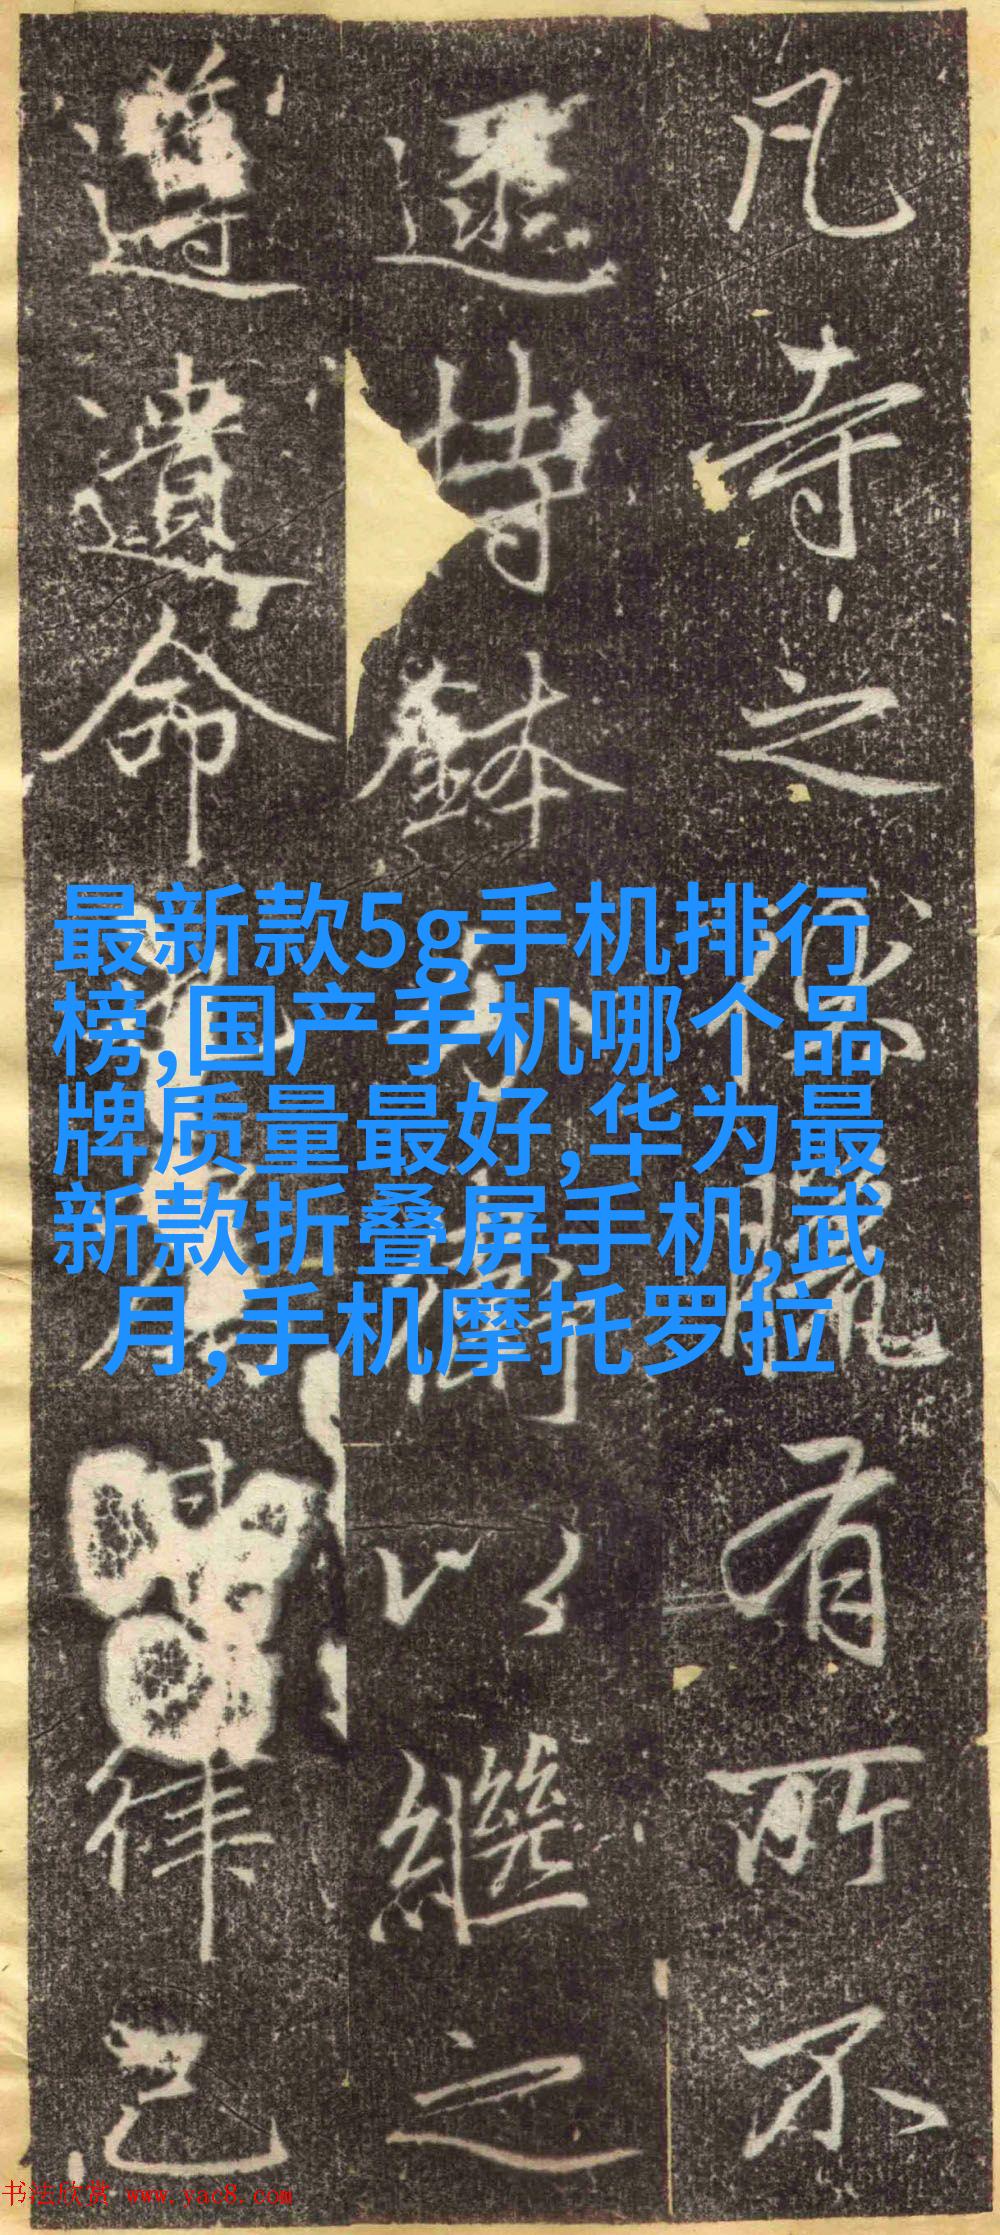 凡寺之有所不
持鉢以繼之
遵遺命律己
最新款5g手机排行
榜,国产手机哪个品
牌质量最好,华为最
新款折叠屏手机,武
月,手机摩托罗拉
书法欣赏 www.yac8.com